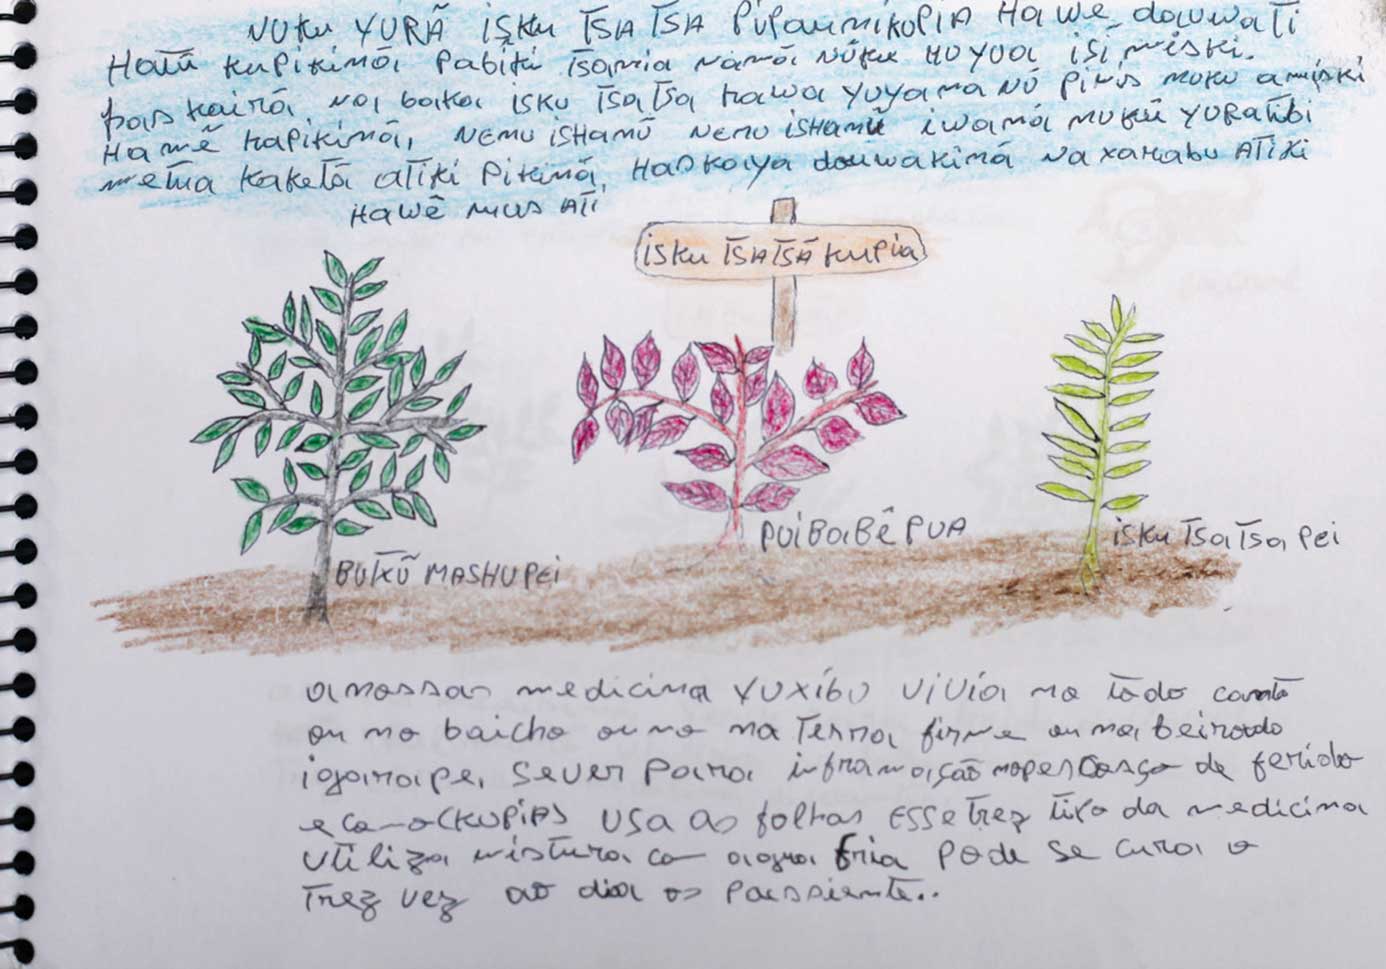 NUKU YURÃ ISKU TSATSA PIPAUNIKUPIA HAWẼ dauwati
Hatũ kupikinã pabiki tsamia namã nuku huyua isi miski.
haskainã nai baka isku tsatsa hawa yuyama nũ pimis nuku amiski
Hawẽ kapikinã, nemu ishamũ nemu ishamũ iwamã nukũ YURATIBI
metsa kaketã atiki Pikinã, Haskaya dauwakinã na xarabu ATIKI
HAWÊ mus ATI
isku TSATSÃ kupia
BUTXŨ MASHUPEI
PUIBaBÊPUA
isku TsaTsa Pei
a nossas medicina YUXIBU vivia no todo canto
ou no baicho ou no na Terra firme ou na beirado
igarape, sever Para inframação no pescosço de ferido
e como (KUPIA) USA as folhas ESSE Trez tipo da medicina
utiliza mistura com agua fria Pode se cura o
Trez vez ao dia os Paessiente..